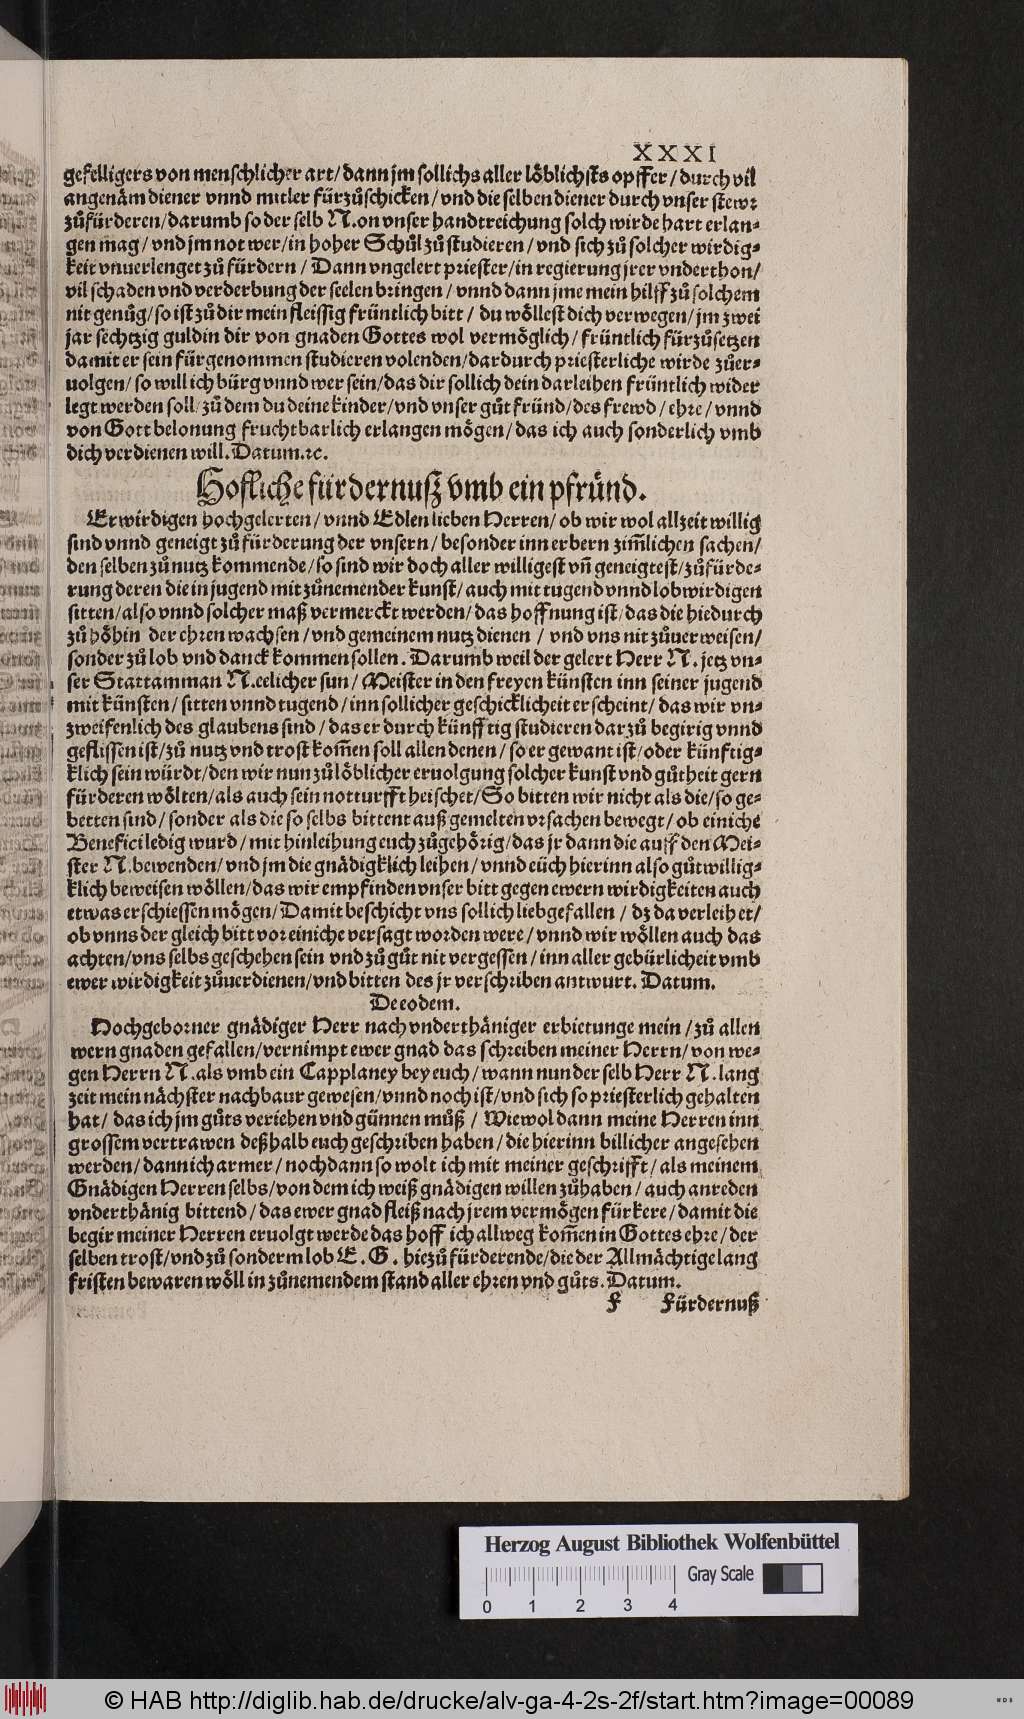 XXXI
gefelligers von menschlicher art/ dann jm sollichs aller löblichsts opffer/ durch vil
angenäm diener vnnd mitler fürzůschicken/ vnd die selben diener durch vnser stewr
zůfürderen/ darumb so der selb N. on vnser handtreichung solch wirde hart erlan-
gen mag/ vnd jm not wer/ in hoher Schůl zů studieren/ vnd sich zů solcher wirdig-
keit vnuerlenget zů fürdern/ Dann vngelert priester/ in regierung jrer vnderthon/
vil schaden vnd verderbung der seelen bringen/ vnnd dann jme mein hilff zů solchem
nit genůg/ so ist zů dir mein fleissig früntlich bitt/ du wöllest dich verwegen/ jm zwei
jar sechtzig guldin dir von gnaden Gottes wol vermöglich/ früntlich fürzůsetzen
damit er sein fürgenommen studieren volenden/ dardurch priesterliche wirde zůer-
uolgen/ so will ich bürg vnnd wer sein/ das dir sollich dein darleihen früntlich wider
legt werden soll/ zů dem du deine kinder/ vnd vnser gůt fründ/ des frewd/ ehre/ vnnd
von Gott belonung fruchtbarlich erlangen mögen/ das ich auch sonderlich vmb
dich verdienen will. Datum. ꝛc.
Hofliche fürdernuß vmb ein pfründ.
Erwirdigen hochgelerten/ vnnd Edlen lieben Herren/ ob wir wol allzeit willig
sind vnnd geneigt zů fürderung der vnsern/ besonder inn erbern zim̄lichen sachen/
den selben zů nutz kommende/ so sind wir doch aller willigest vn̄ geneigtest/ zů fürde-
rung deren die in jugend mit zůnemender kunst/ auch mit tugend vnnd lobwirdigen
sitten/ also vnnd solcher maß vermerckt werden/ das hoffnung ist/ das die hiedurch
zů höhin der ehren wachsen/ vnd gemeinem nutz dienen/ vnd vns nit zůuerweisen/
sonder zů lob vnd danck kommen sollen. Darumb weil der gelert Herr N. jetz vn-
ser Stattamman N. eelicher sun/ Meister in den freyen künsten inn seiner jugend
mit künsten/ sitten vnnd tugend/ inn sollicher geschicklicheit erscheint/ das wir vn-
zweifenlich des glaubens sind/ das er durch künfftig studieren darzů begirig vnnd
geflissen ist/ zů nutz vnd trost kom̄en soll allen denen/ so er gewant ist/ oder künftig-
klich sein würdt/ den wir nun zů löblicher eruolgung solcher kunst vnd gůtheit gern
fürderen wölten/ als auch sein notturfft heischet/ So bitten wir nicht als die/ so ge-
betten sind/ sonder als die so selbs bittent auß gemelten vrsachen bewegt/ ob einiche
Benefici ledig wurd/ mit hinleihung euch zůgehörig/ das jr dann die auff den Mei-
ster N. bewenden/ vnd jm die gnädigklich leihen/ vnnd eüch hierinn also gůtwillig-
klich beweisen wöllen/ das wir empfinden vnser bitt gegen ewern wirdigkeiten auch
etwas erschiessen mögen/ Damit beschicht vns sollich liebgefallen/ dz da verleihet/
ob vnns der gleich bitt vor einiche versagt worden were/ vnnd wir wöllen auch das
achten/ vns selbs geschehen sein vnd zů gůt nit vergessen/ inn aller gebürlicheit vmb
ewer wirdigkeit zůuerdienen/ vnd bitten des jr verschriben antwurt. Datum.
De eodem.
Hochgeborner gnädiger Herr nach vnderthäniger erbietunge mein/ zů allen
wern gnaden gefallen/ vernimpt ewer gnad das schreiben meiner Herrn/ von we-
gen Herrn N. als vmb ein Capplaney bey euch/ wann nun der selb Herr N. lang
zeit mein nächster nachbaur gewesen/ vnnd noch ist/ vnd sich so priesterlich gehalten
hat/ das ich jm gůts veriehen vnd günnen můß/ Wiewol dann meine Herren inn
grossem vertrawen deßhalb euch geschriben haben/ die hierinn billicher angesehen
werden/ dann ich armer/ noch dann so wolt ich mit meiner geschrifft/ als meinem
Gnädigen Herren selbs/ von dem ich weiß gnädigen willen zůhaben/ auch anreden
vnderthänig bittend/ das ewer gnad fleiß nach jrem vermögen fürkere/ damit die
begir meiner Herren eruolgt werde das hoff ich allweg kom̄en in Gottes ehre/ der
selben trost/ vnd zů sonderm lob E. G. hiezů fürderende/ die der Allmächtige lang
fristen bewaren wöll in zůnemendem stand aller ehren vnd gůts. Datum.
F Fürdernuß
Herzog August Bibliothek Wolfenbüttel
Gray Scale
0 1 2 3 4
© HAB http://diglib.hab.de/drucke/alv-ga-4-2s-2f/start.htm?image=00089